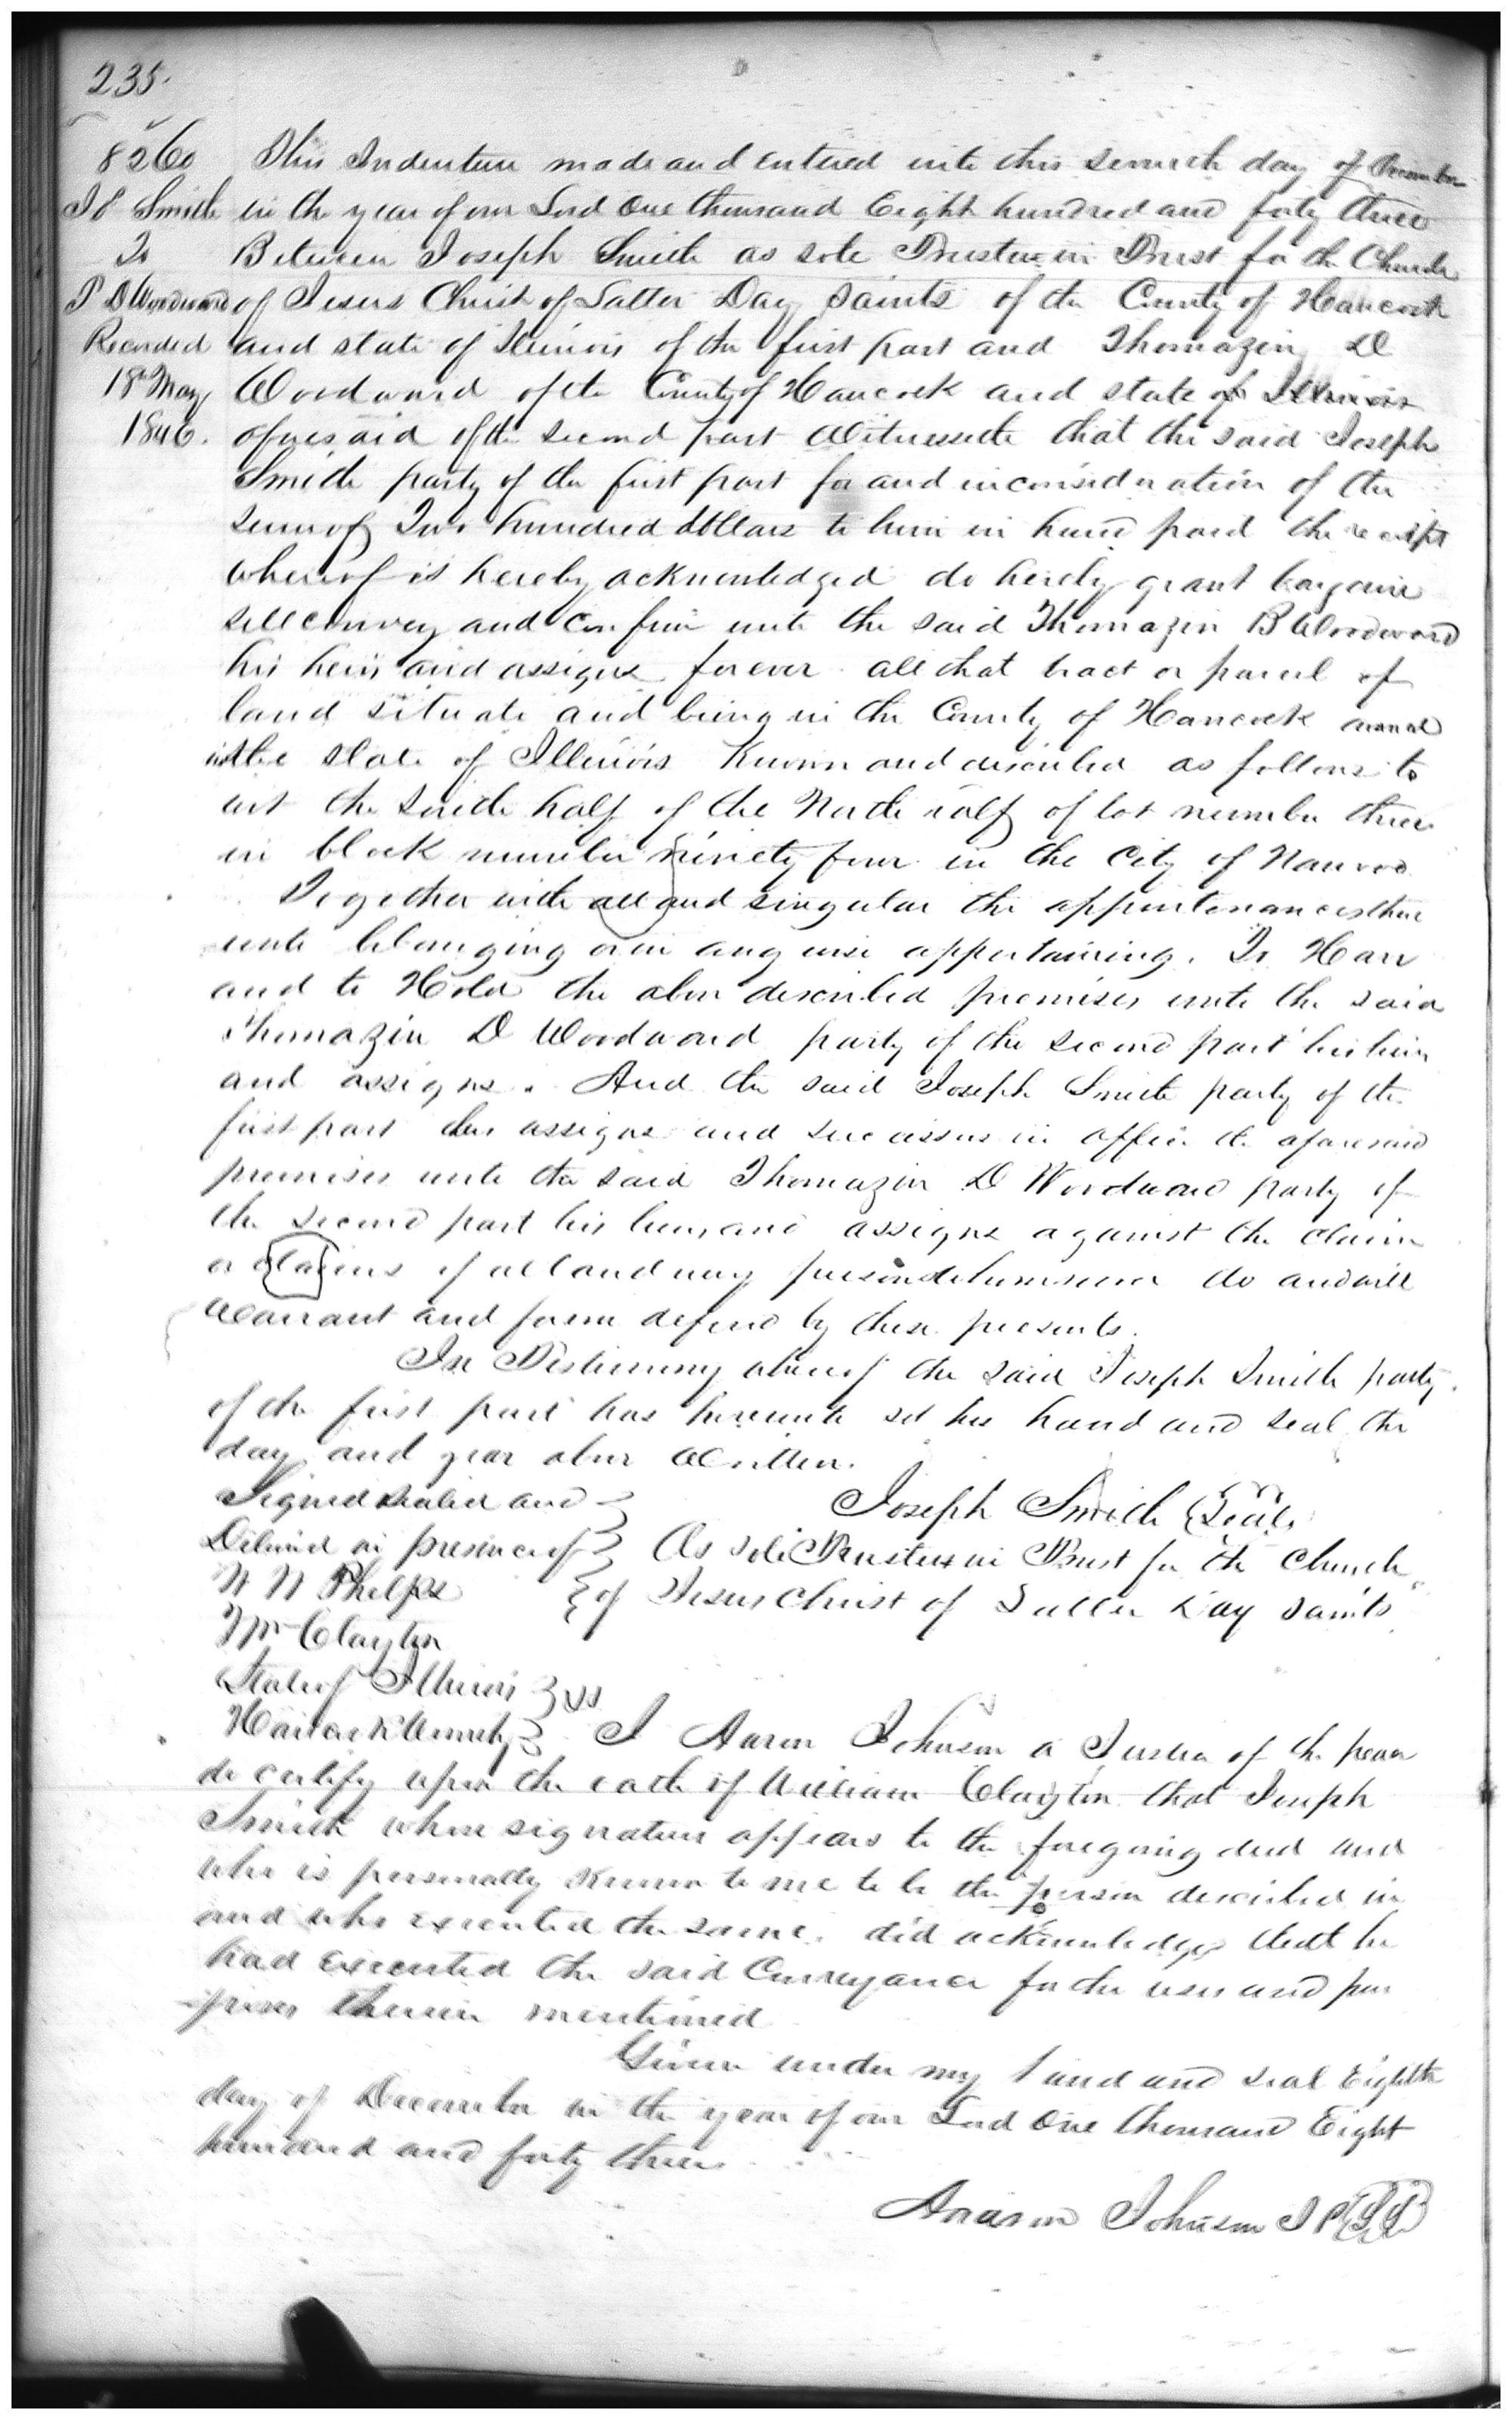 235.
8260 This Indenture made and entered into this seventh day of December
J S Smith in the year of our Lord One thousand Eight hundred and forty three
To Between Joseph Smith as sole Trustee in Trust for the Church
T D Woodward of Jesus Christ of Latter Day Saints of the County of Hancock
Recorded and state of Illinois of the first part and Thomazin D
18th May Woodward of the County of Hancock and state of Illinois
1846. aforesaid of the second part Witnesseth that the said Joseph
Smith party of the first part for and in consideration of the
sum of Two hundred dollars to him in hand paid the receipt
whereof is hereby acknowledged do hereby grant bargain
sell convey and confirm unto the said Thomazin B Woodward
his heirs and assigns forever all that tract or parcel of
land situate and being in the County of Hancock and
in the state of Illinois Known and described as follows to
wit the South half of the North half of lot number three
in block number ninety four in the City of Nauvoo
Together with all and singular the appurtenances there
unto belonging or in any wise appertaining. To Have
and to Hold the above described premises unto the said
Thomazin D Woodward party of the second part his heirs
and assigns. And the said Joseph Smith party of the
first part his assigns and successors in office the aforesaid
premises unto the said Thomazin D Woodward party of
the second part his heirs and assigns against the claim
or claims of all and every persons whomsoever do and will
Warrant and forever defend by these presents.
In Testimony whereof the said Joseph Smith party
of the first part has hereunto set his hand and seal the
day and year above Written.
Signed sealed and Joseph Smith (Seal)
Delivered in presence of As sole Trustee in Trust for the Church
W W Phelps of Jesus Christ of Latter Day Saints
Wm Clayton
State of Illinois ss
Hancock County I Aaron Johnson a Justice of the peace
do certify upon the oath of William Clayton that Joseph
Smith whose signature appears to the foregoing deed and
who is personally known to me to be the person described in
and who executed the same, did acknowledge that he
had executed the said Conveyance for the uses and pur
poses therein mentioned
Given under my hand and seal Eighth
day of December in the year of our Lord One thousand Eight
hundred and forty three
Aaron Johnson J P